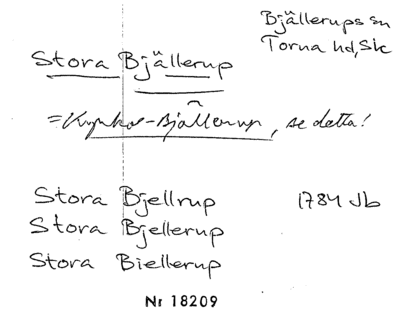 Bjällerups sn
Torna hd, Sk
Stora Bjällerup
= Kyrko-Bjällerup, se detta!
Stora Bjellrup 1784 Jb
Stora Bjellerup
Stora Biellerup
Nr 18209